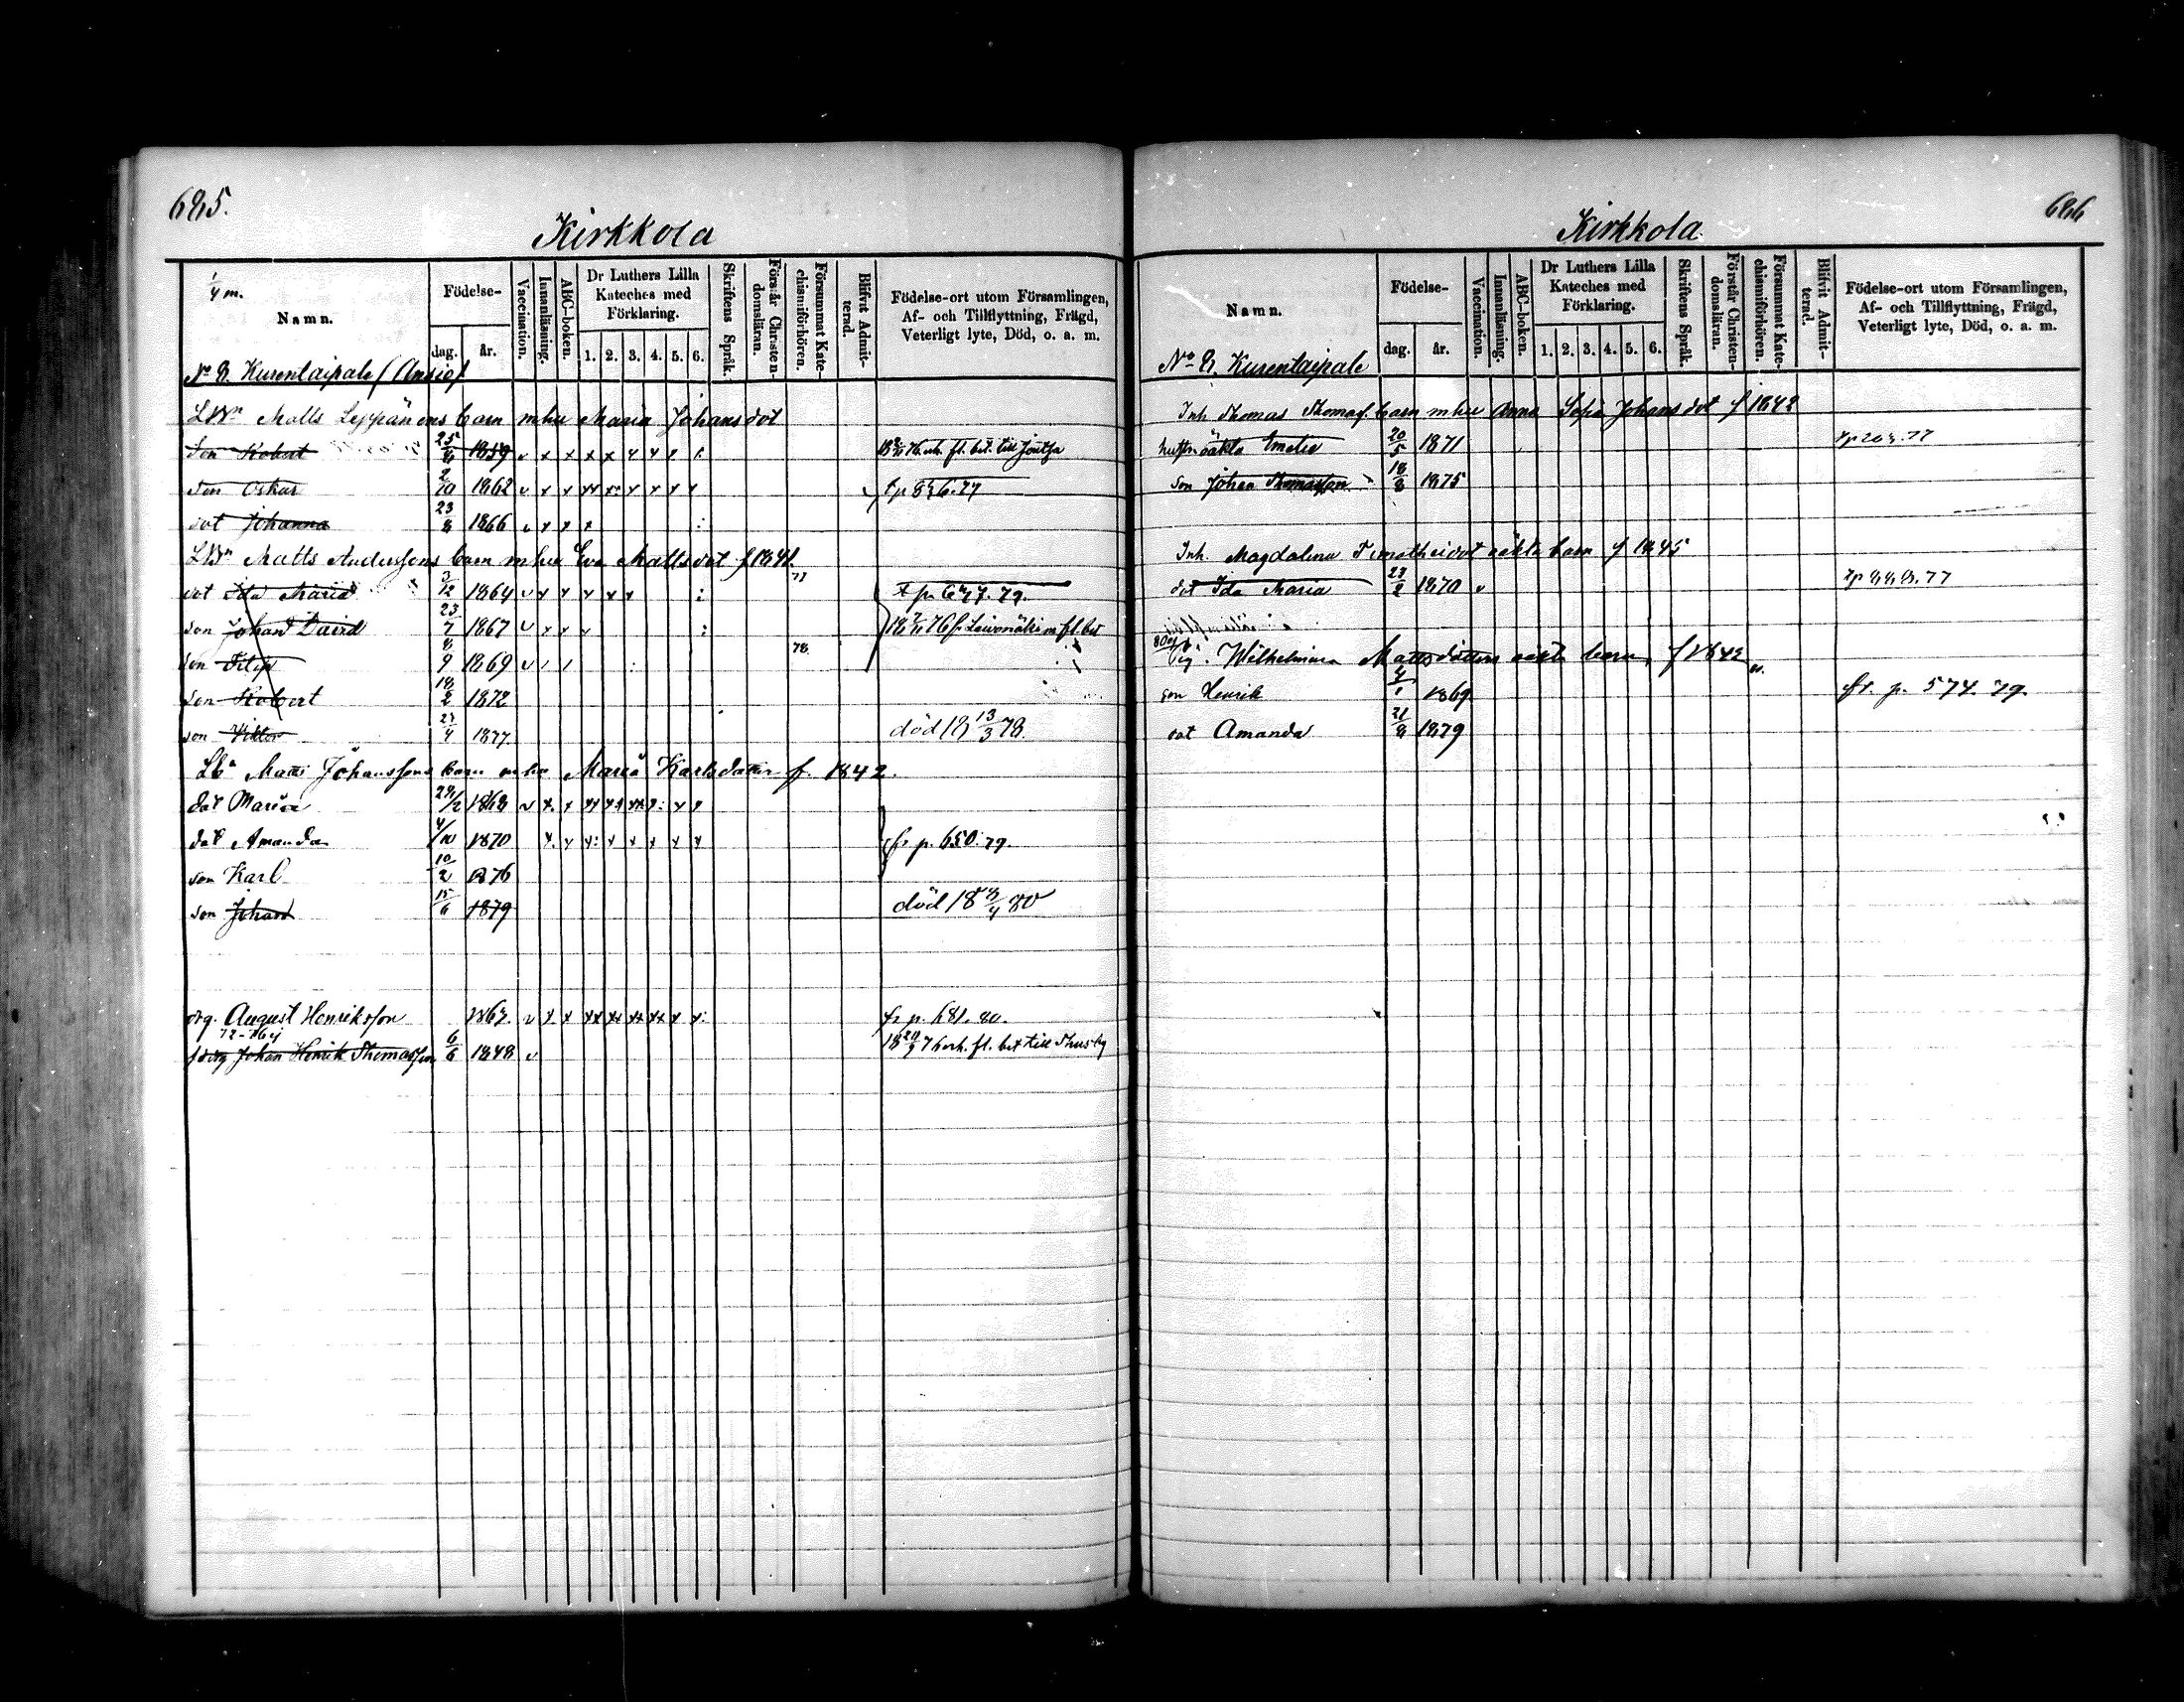 685.
Kirkkola
1/4 m.
Namn.
Födelse-
dag.
år.
Vaccination.
Innanläsning.
ABC-boken.
Dr Luthers Lilla
Kateches med
Förklaring.
1. 2. 3. 4. 5. 6.
Skriftens Språk.
Förstår Christen-
domsläran.
Försummat Kate-
chismiförhören.
Blifvit Admit-
terad.
Födelse-ort utom Församlingen,
Af- och Tillflyttning, Frägd,
Veterligt lyte, Död, o. a. m.
No 8. Kurenlaipale (Ansio)
Matts Leppänens barn m hu Maria Johansdot
Son Robert 25/8 1859 v x x x x till Joutsa
son Oskar 2/10 1862 v x x xx x x x x x
dot Johanna 23/8 1866 v x x x
Matts Anderssons barn m hu Eva Mattsdot f 1841.
77
dot Ida Maria /12 1864 v x x x x x
son Johan David 23/7 1867 v x x x
78.
son Filip 8/9 1869 v
son Robert 18/2 1872
son Viktor 27/4 1877. död 18 13/3 78.
Matts Johanssons barn m hu Maria Karlsdotter f. 1842.
dot Maria 29/12 1863 v x x
dot Amanda 4/10 1870 x x fr p. 650. 79.
son Karl 10/2 1876
son Johan 15/6 1879 död 18 /4 80
drg. August Henriksson 1863. v x x fr p. 681. 80.
Johan Henrik Thomasson 6/6 1848 v fl. bet till Thusby
686
Kirkkola
Namn.
Födelse-
dag.
år.
Vaccination.
Innanläsning.
ABC-boken.
Dr Luthers Lilla
Kateches med
Förklaring.
1. 2. 3. 4. 5. 6.
Skriftens Språk.
Förstår Christen-
domsläran.
Försummat Kate-
chismiförhören.
Blifvit Admit-
terad.
Födelse-ort utom Församlingen,
Af- och Tillflyttning, Frägd,
Veterligt lyte, Död, o. a. m.
No 8. Kurenlaipale
Inh Thomas Thomass. barn m hu Anna Sofia Johansdot f 1842
oäkta Emelie 20/5 1871
son Johan Thomasson 18/8 1875
Inh. Magdalena Timotheidot oäkta barn f 1845
dot Ida Maria 23/2 1870 v
Wilhelmina Mattsdotters oäkt barn, f 1842
son Henrik 4/1 1869 fr. p. 574. 79.
dot Amanda 21/8 1879